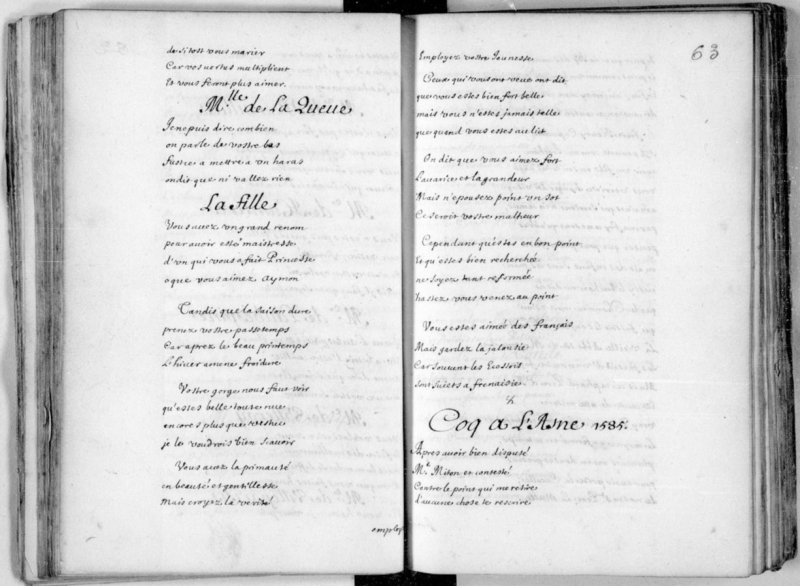 de sitost vous marier
Car vos vertus multiplient
Et vous feront plus aimer.
M.lle de La Queue
Je ne puis dire combien
on parle de vostre bas
Justie a mettre a vn haras
on dit que ni vallez rien
La fille
Vous avez vn grand renom
pour avoir esté maistresse
d'vn qui vous a fait Princesse
a que vous aimez aymon
Tandis que la saison dure
prenez vostre passetemps
Car aprez le beau printemps
L'hiver amene froidure
Vostre gorge nous faut voir
qu'estes belle toute nue
encores plus que vestue
je le voudrois bien scavoir
Vous avez la primauté
en beauté et gentillesse
Mais croyez la verité
employ
63
Employez vostre Jeunesse
Ceux qui vous ont veue ont dit
que vous estes bien fort belle
mais vous n'estes jamais telle
que quend vous estes au lit
On dit que vous aimez fort
L'avarice et la grandeur
Mais n'epousez point vn sot
Ce seroit vostre malheur
Cependant qu'estes en bon point
et qu'estes bien recherchée
ne soyez tant reformée
hastez vous venez au point
Vous estes aimée des français
Mais gardez la jalousie
Car souvent les Ecossois
sont suiets a frenaisie
Coq a L'Asne 1585.
Apres avoir bien disputé
Me Miton et contesté
Contre le point qui me retire
d'aucune chose te rescrire